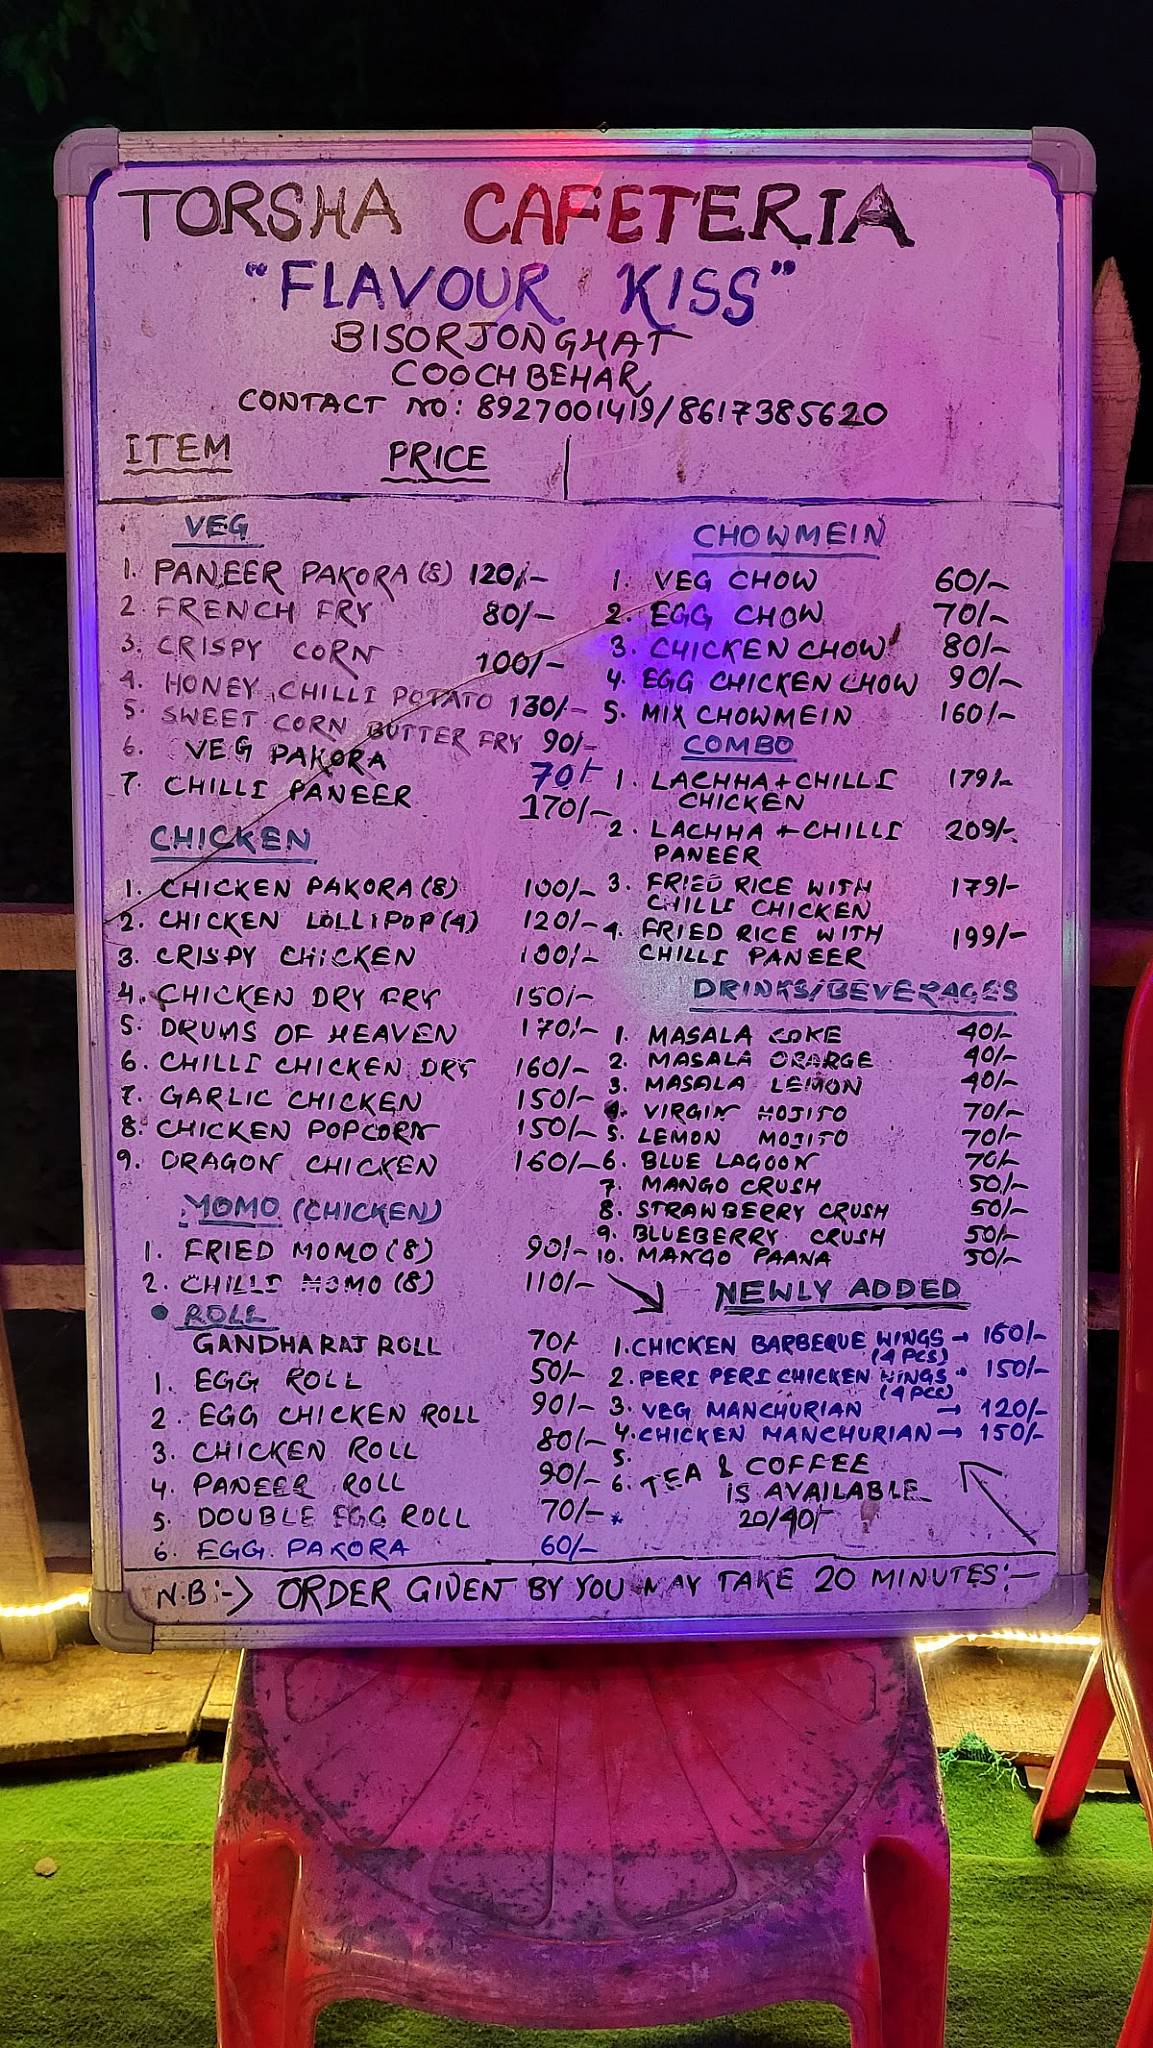 TORSHA CAFETERIA
"FLAVOUR KISS"
BISORJONGHAT
COOCHBEHAR
CONTACT NO: 8927001419/8617385620
ITEM PRICE
VEG
1. PANEER PAKORA (8) 120/-
2. FRENCH FRY 80/-
3. CRISPY CORN 100/-
4. HONEY CHILLI POTATO 130/-
5. SWEET CORN BUTTER FRY 90/-
6. VEG PAKORA 70/-
7. CHILLI PANEER 170/-
CHICKEN
1. CHICKEN PAKORA (8) 100/-
2. CHICKEN LOLLIPOP (4) 120/-
3. CRISPY CHICKEN 100/-
4. CHICKEN DRY FRY 150/-
5. DRUMS OF HEAVEN 170/-
6. CHILLI CHICKEN DRY 160/-
7. GARLIC CHICKEN 150/-
8. CHICKEN POPCORN 150/-
9. DRAGON CHICKEN 160/-
MOMO (CHICKEN)
1. FRIED MOMO (8) 90/-
2. CHILLI MOMO (8) 110/-
• ROLL
GANDHARAJ ROLL 70/-
1. EGG ROLL 50/-
2. EGG CHICKEN ROLL 90/-
3. CHICKEN ROLL 80/-
4. PANEER ROLL 90/-
5. DOUBLE EGG ROLL 70/-
6. EGG PAKORA 60/-
CHOWMEIN
1. VEG CHOW 60/-
2. EGG CHOW 70/-
3. CHICKEN CHOW 80/-
4. EGG CHICKEN CHOW 90/-
5. MIX CHOWMEIN 160/-
COMBO
1. LACHHA + CHILLI 179/-
CHICKEN
2. LACHHA + CHILLI 209/-
PANEER
3. FRIED RICE WITH 179/-
CHILLI CHICKEN
4. FRIED RICE WITH 199/-
CHILLI PANEER
DRINKS/BEVERAGES
1. MASALA COKE 40/-
2. MASALA ORARGE 40/-
3. MASALA LEMON 40/-
4. VIRGIN MOJITO 70/-
5. LEMON MOJITO 70/-
6. BLUE LAGOON 70/-
7. MANGO CRUSH 50/-
8. STRAWBERRY CRUSH 50/-
9. BLUEBERRY CRUSH 50/-
10. MANGO PAANA 50/-
NEWLY ADDED
1. CHICKEN BARBEQUE WINGS → 160/-
(4 PCS)
2. PERI PERI CHICKEN WINGS → 150/-
(4 PCS)
3. VEG MANCHURIAN → 120/-
4. CHICKEN MANCHURIAN → 150/-
5.
6. TEA & COFFEE
IS AVAILABLE
20/40/-
N.B:-> ORDER GIVEN BY YOU MAY TAKE 20 MINUTES:-